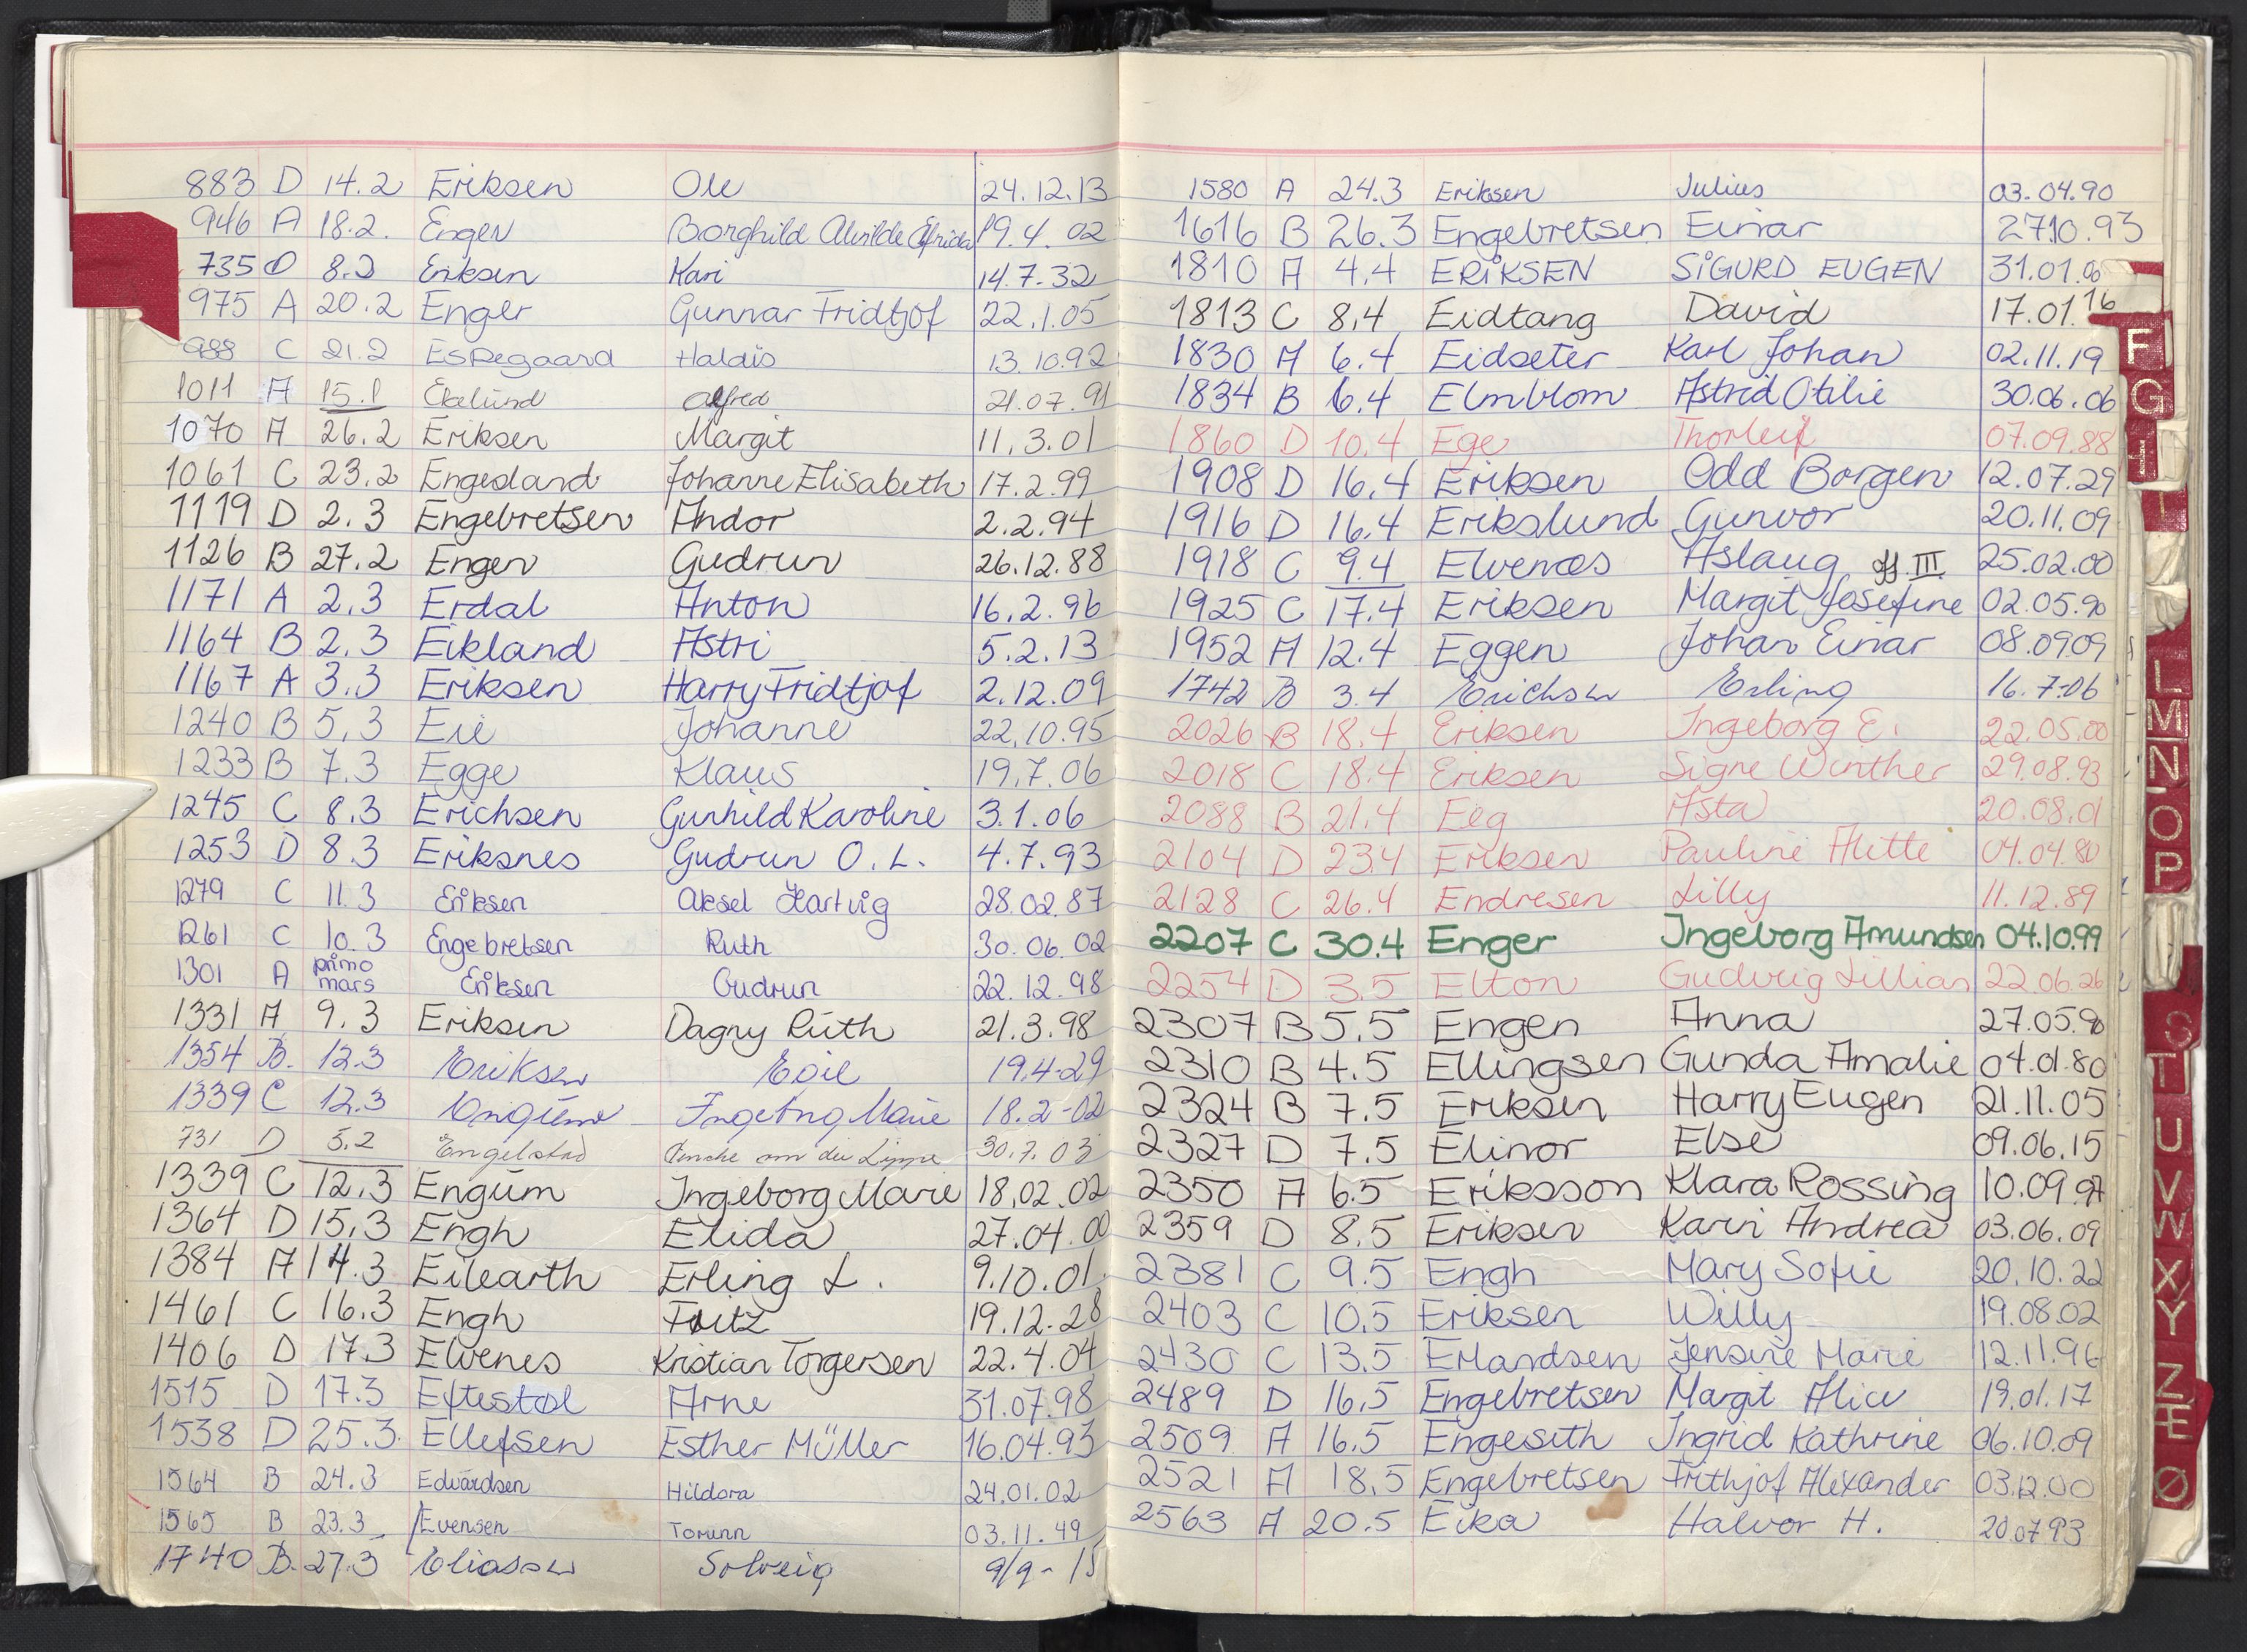 883 D 14.2 Eriksen Ole 24.12.13
946 A 18.2. Engen Borghild Alvilde Elfrida 19.4.02
735 D 8.2 Eriksen Kari 14.7.32
975 A 20.2 Enger Gunnar Fridtjof 22.1.05
988 C 21.2 Espegaard Haldis 13.10.92
1011 A 15.1 Ekelund Alfred 21.07.91
1070 A 26.2 Eriksen Margit 11.3.01
1061 C 23.2 Engesland Johanne Elisabeth 17.2.99
1119 D 2.3 Engebretsen Andor 2.2.94
1126 B 27.2 Engen Gudrun 26.12.88
1171 A 2.3 Erdal Anton 16.2.96
1164 B 2.3 Eikland Astri 5.2.13
1167 A 3.3 Eriksen Harry Fridtjof 2.12.09
1240 B 5.3 Eie Johanne 22.10.95
1233 B 7.3 Egge Klaus 19.7.06
1245 C 8.3 Erichsen Gunhild Karoline 3.1.06
1253 D 8.3 Eriksnes Gudrun O. L. 4.7.93
1279 C 11.3 Eriksen Aksel Hartvig 28.02.87
1261 C 10.3 Engebretsen Ruth 30.06.02
1301 A primo mars Eriksen Gudrun 22.12.98
1331 A 9.3 Eriksen Dagny Ruth 21.3.98
1354 B. 12.3 Eriksen Egil 19.4-29
1339 C 12.3 Engum Ingeborg Marie 18.2-02
731 D 5.2 Engelstad 30.7.03
1339 C 12.3 Engum Ingeborg Marie 18.02.02
1364 D 15.3 Engh Elida 27.04.00
1384 A 14.3 Eilearth Erling L. 9.10.01
1461 C 16.3 Engh Fritz 19.12.28
1406 D 17.3 Elvenes Kristian Torgersen 22.4.04
1515 D 17.3 Eftestøl Arne 31.07.98
1538 D 25.3. Ellefsen Esther Müller 16.04.93
1564 B 24.3 Edvardsen Hildora 24.01.02
1565 B 23.3 Evensen Torunn 03.11.49
1740 B. 27.3 Eliassen Solveig 9/9-15
1580 A 24.3 Eriksen Julius 03.04.90
1616 B 26.3 Engebretsen Einar 27.10.93
1810 A 4.4 ERIKSEN SIGURD EUGEN 31.01.00
1813 C 8.4 Eidtang David 17.01.16
1830 A 6.4 Eidseter Karl Johan 02.11.19
1834 B 6.4 Elmblom Astrid Otilie 30.06.06
1860 D 10.4 Ege Thorleif 07.09.88
1908 D 16.4 Eriksen Odd Borgen 12.07.29
1916 D 16.4 Erikslund Gunvor 20.11.09
1918 C 9.4 Elvenæs Aslaug III 25.02.00
1925 C 17.4 Eriksen Margit Josefine 02.05.90
1952 A 12.4 Eggen Johan Einar 08.09.09
1742 B 3.4 Erichsen Erling 16.7.06
2026 B 18.4 Eriksen Ingeborg E. 22.05.00
2018 C 18.4 Eriksen Signe Winther 29.08.93
2088 B 21.4 Eeg Asta 20.08.01
2104 D 23.4 Eriksen Pauline Alette 04.04.80
2128 C 26.4 Endresen Lilly 11.12.89
2207 C 30.4 Enger Ingeborg Amundsen 04.10.99
2254 D 3.5 Elton Gudvig Lillian 22.06.26
2307 B 5.5 Engen Anna 27.05.90
2310 B 4.5 Ellingsen Gunda Amalie 04.01.80
2324 B 7.5 Eriksen Harry Eugen 21.11.05
2327 D 7.5 Elinor Else 09.06.15
2350 A 6.5 Eriksson Klara Rossing 10.09.97
2359 D 8.5 Eriksen Karin Andrea 03.06.09
2381 C 9.5 Engh Mary Sofie 20.10.22
2403 C 10.5 Eriksen Willy 19.08.02
2430 C 13.5 Erlandsen Jensine Marie 12.11.96
2489 D 16.5 Engebretsen Margit Alice 19.01.17
2509 A 16.5 Engeseth Ingrid Kathrine 06.10.09
2521 A 18.5 Engebretsen Frithjof Alexander 03.12.00
2563 A 20.5 Eika Halvor H. 20.07.93
F
G
H
I
L
M
N
O
P
S
T
U
V
W
X
Y
Z
Æ
Ø